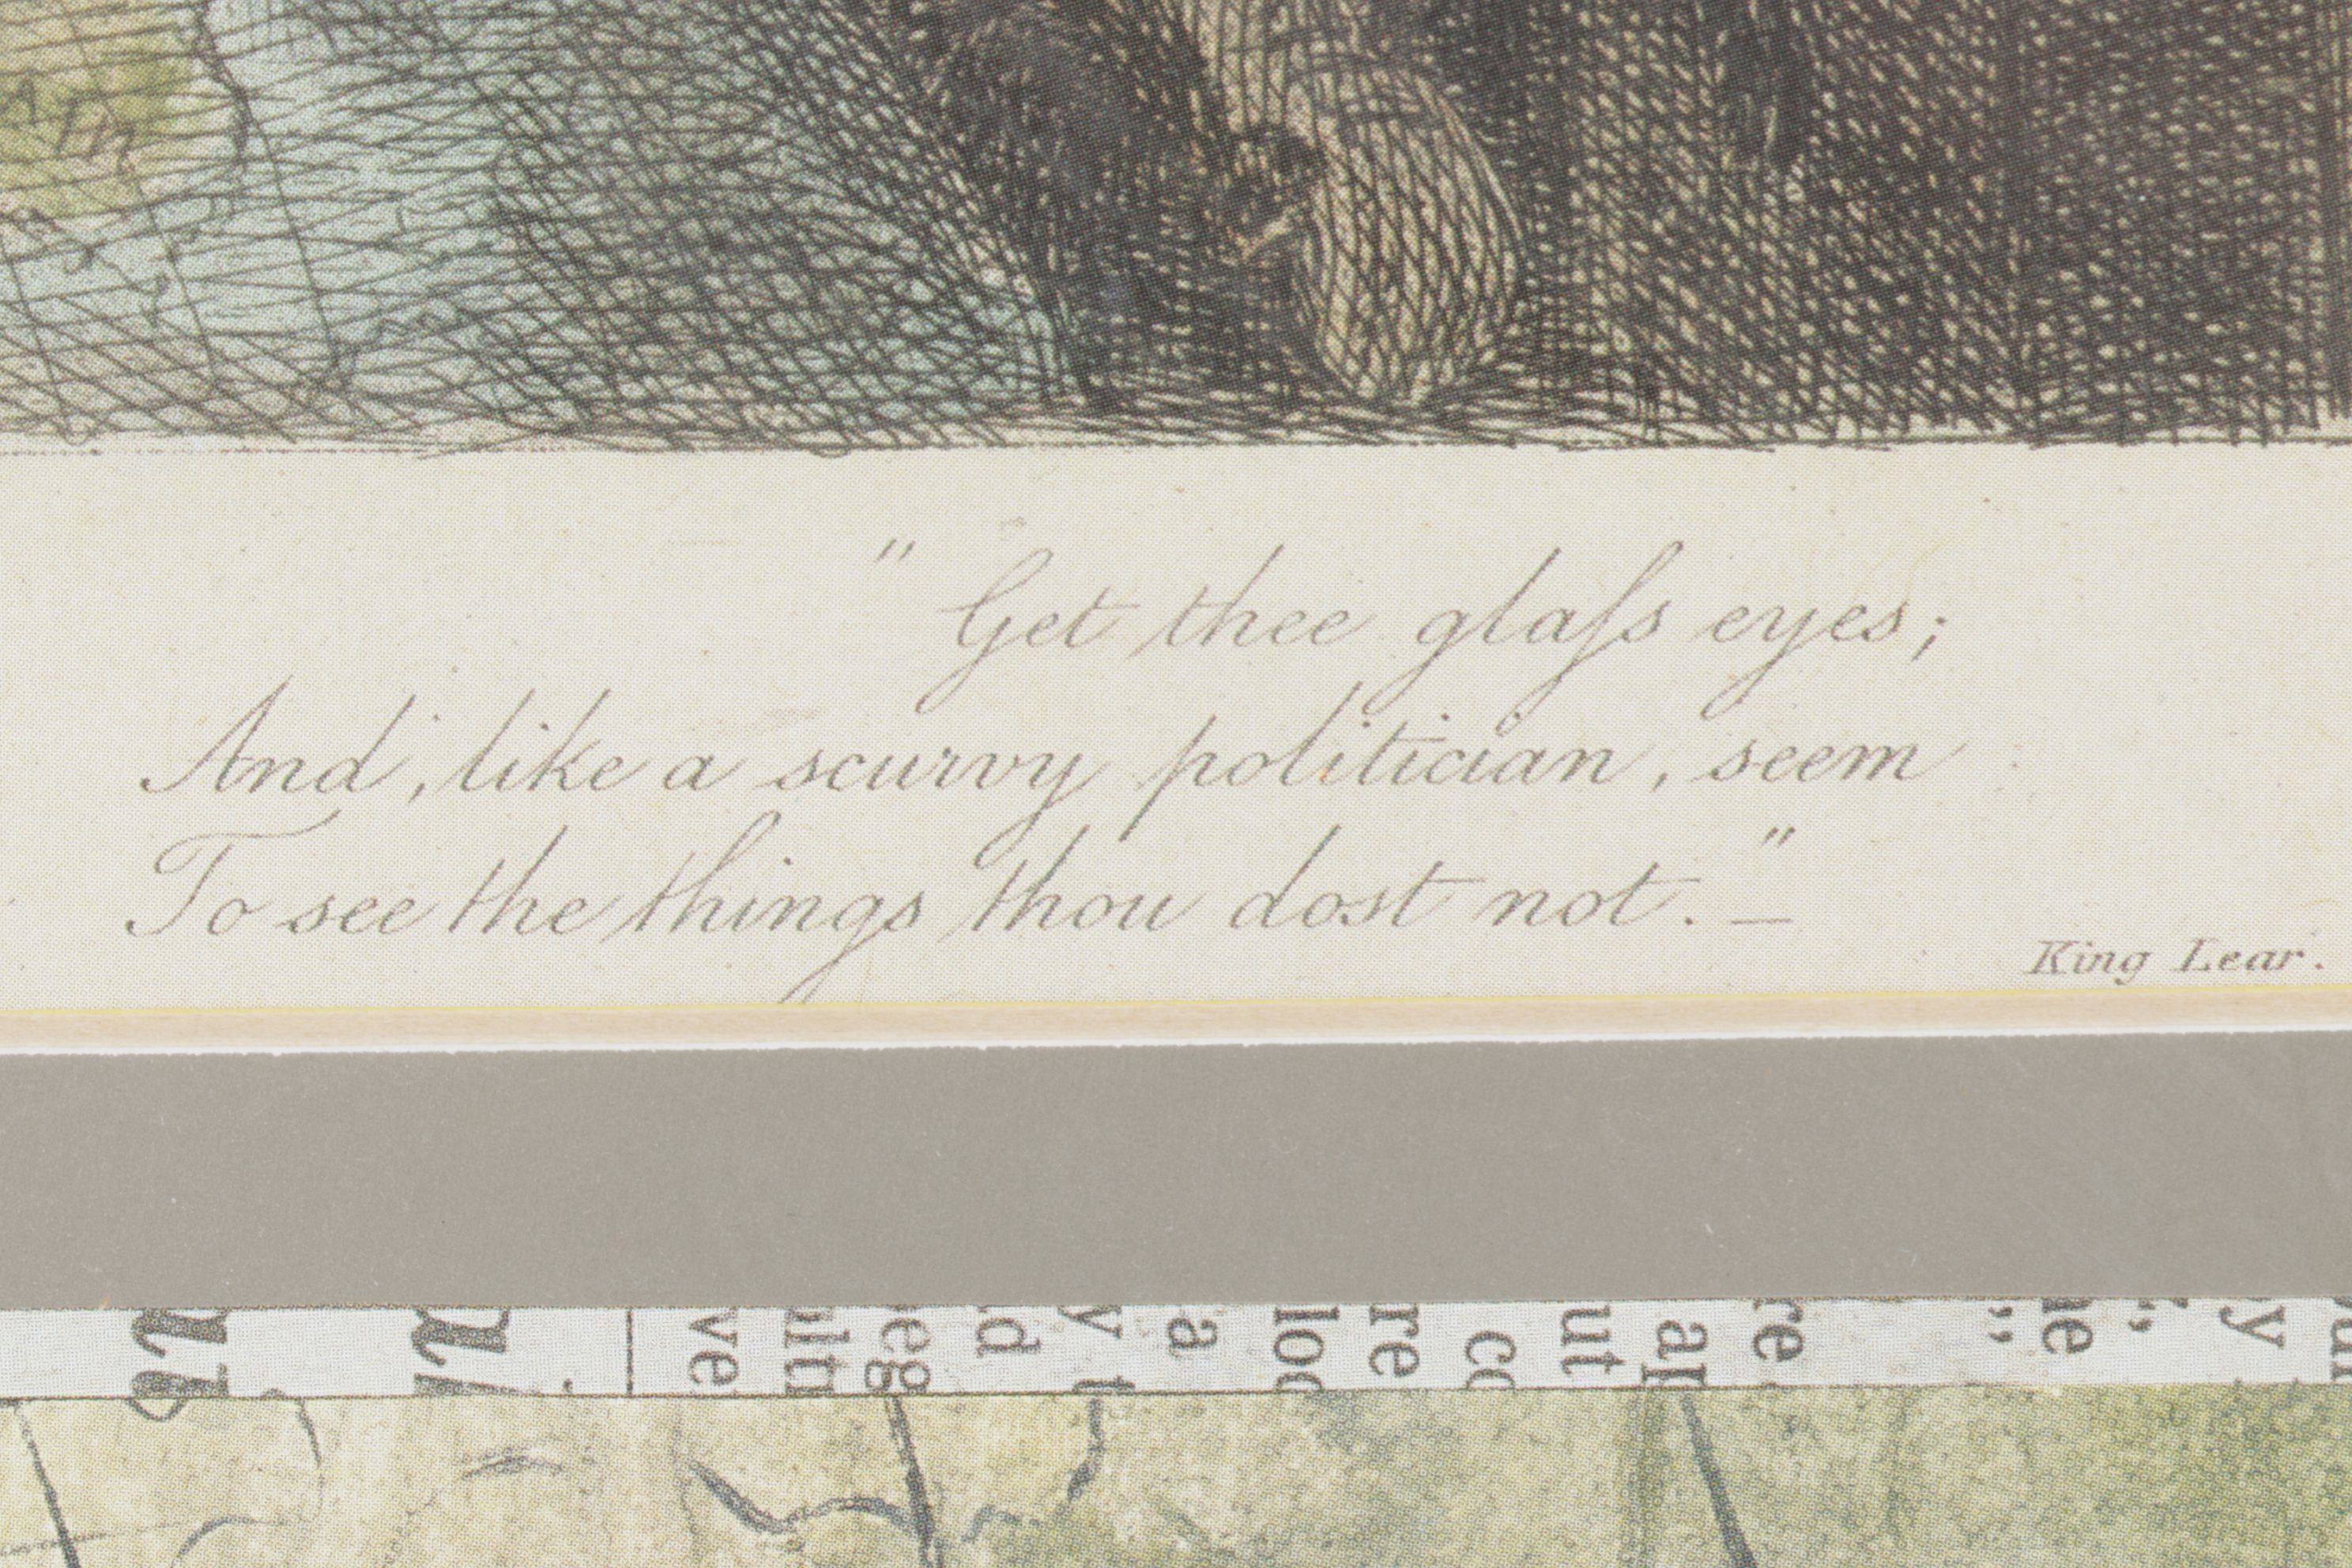 " Get thee glaſs eyes;
And, like a scurvy politician, seem
To see the things thou dost not. _"
King Lear.